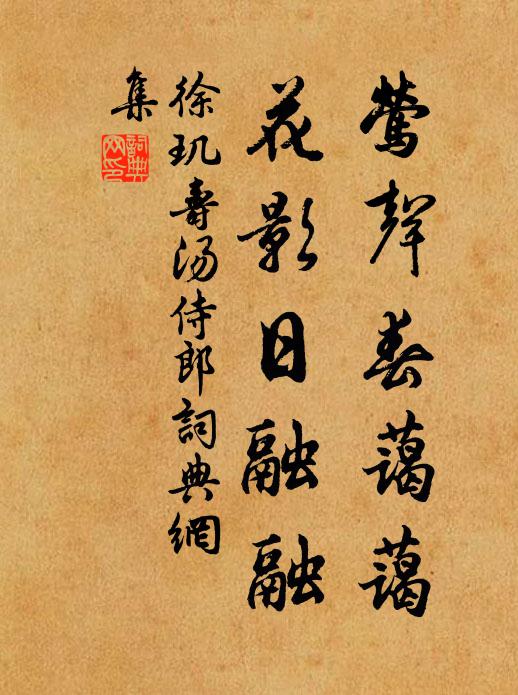 鶯聲春藹藹
花影日融融
徐玑壽湯侍郎詞典網
集
詞典
网印